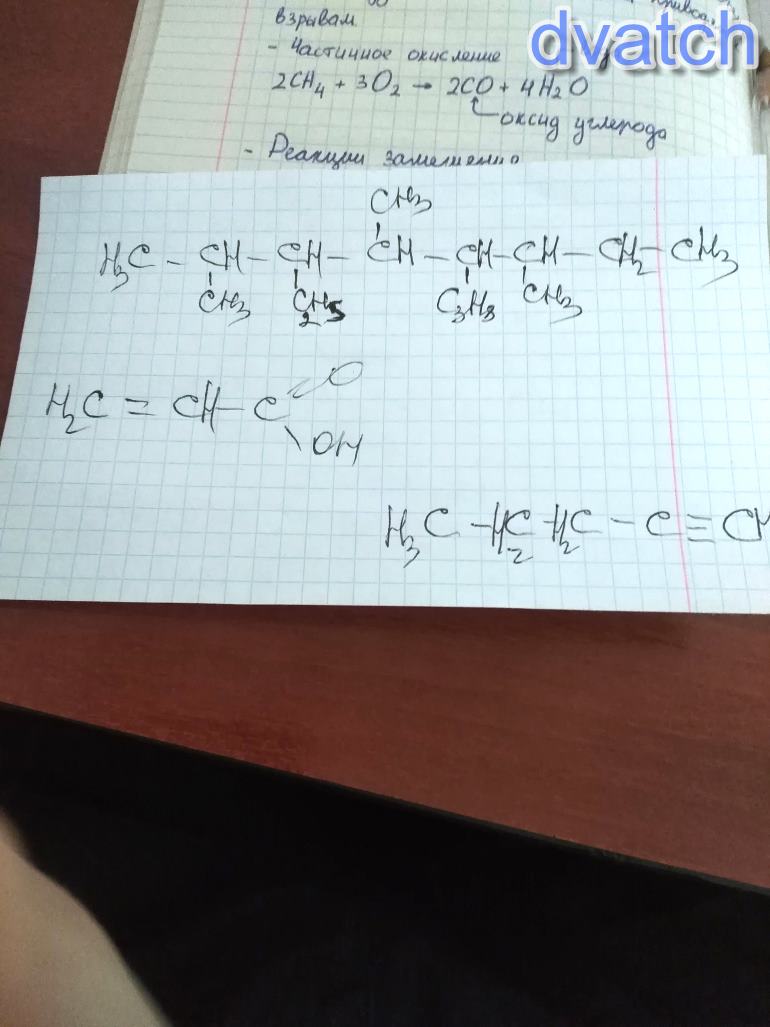 взрывам
dvatch
- Частичное окисление
2CH4 + 3O2 → 2CO + 4H2O
оксид углерода
- Реакции замещения
CH3
H3C - CH - CH - CH - CH - CH - CH2 - CH3
CH3 C2H5 C3H8 CH3
H2C = CH - C = O
\ OH
H3C - H2C H2C - C ≡ CH